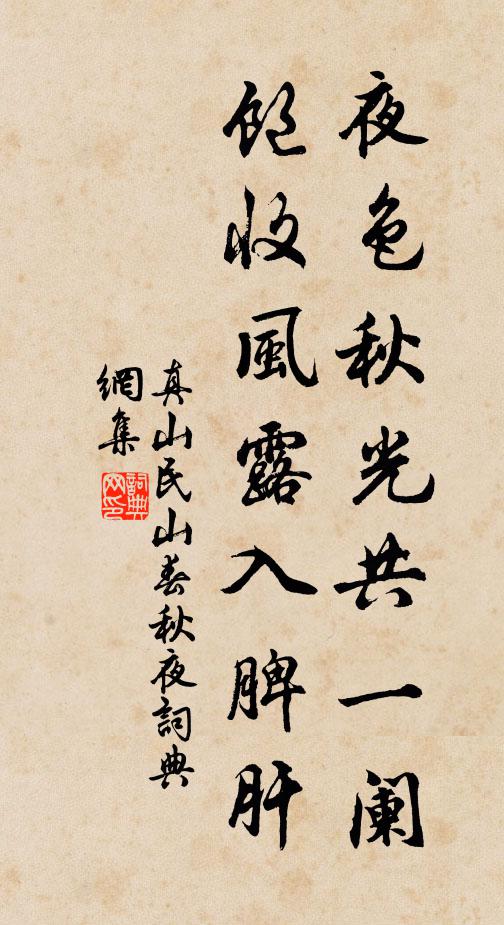 夜色秋光共一阑
饱收風露入脾肝
真山民山春秋夜詞典
網集
詞典
网印